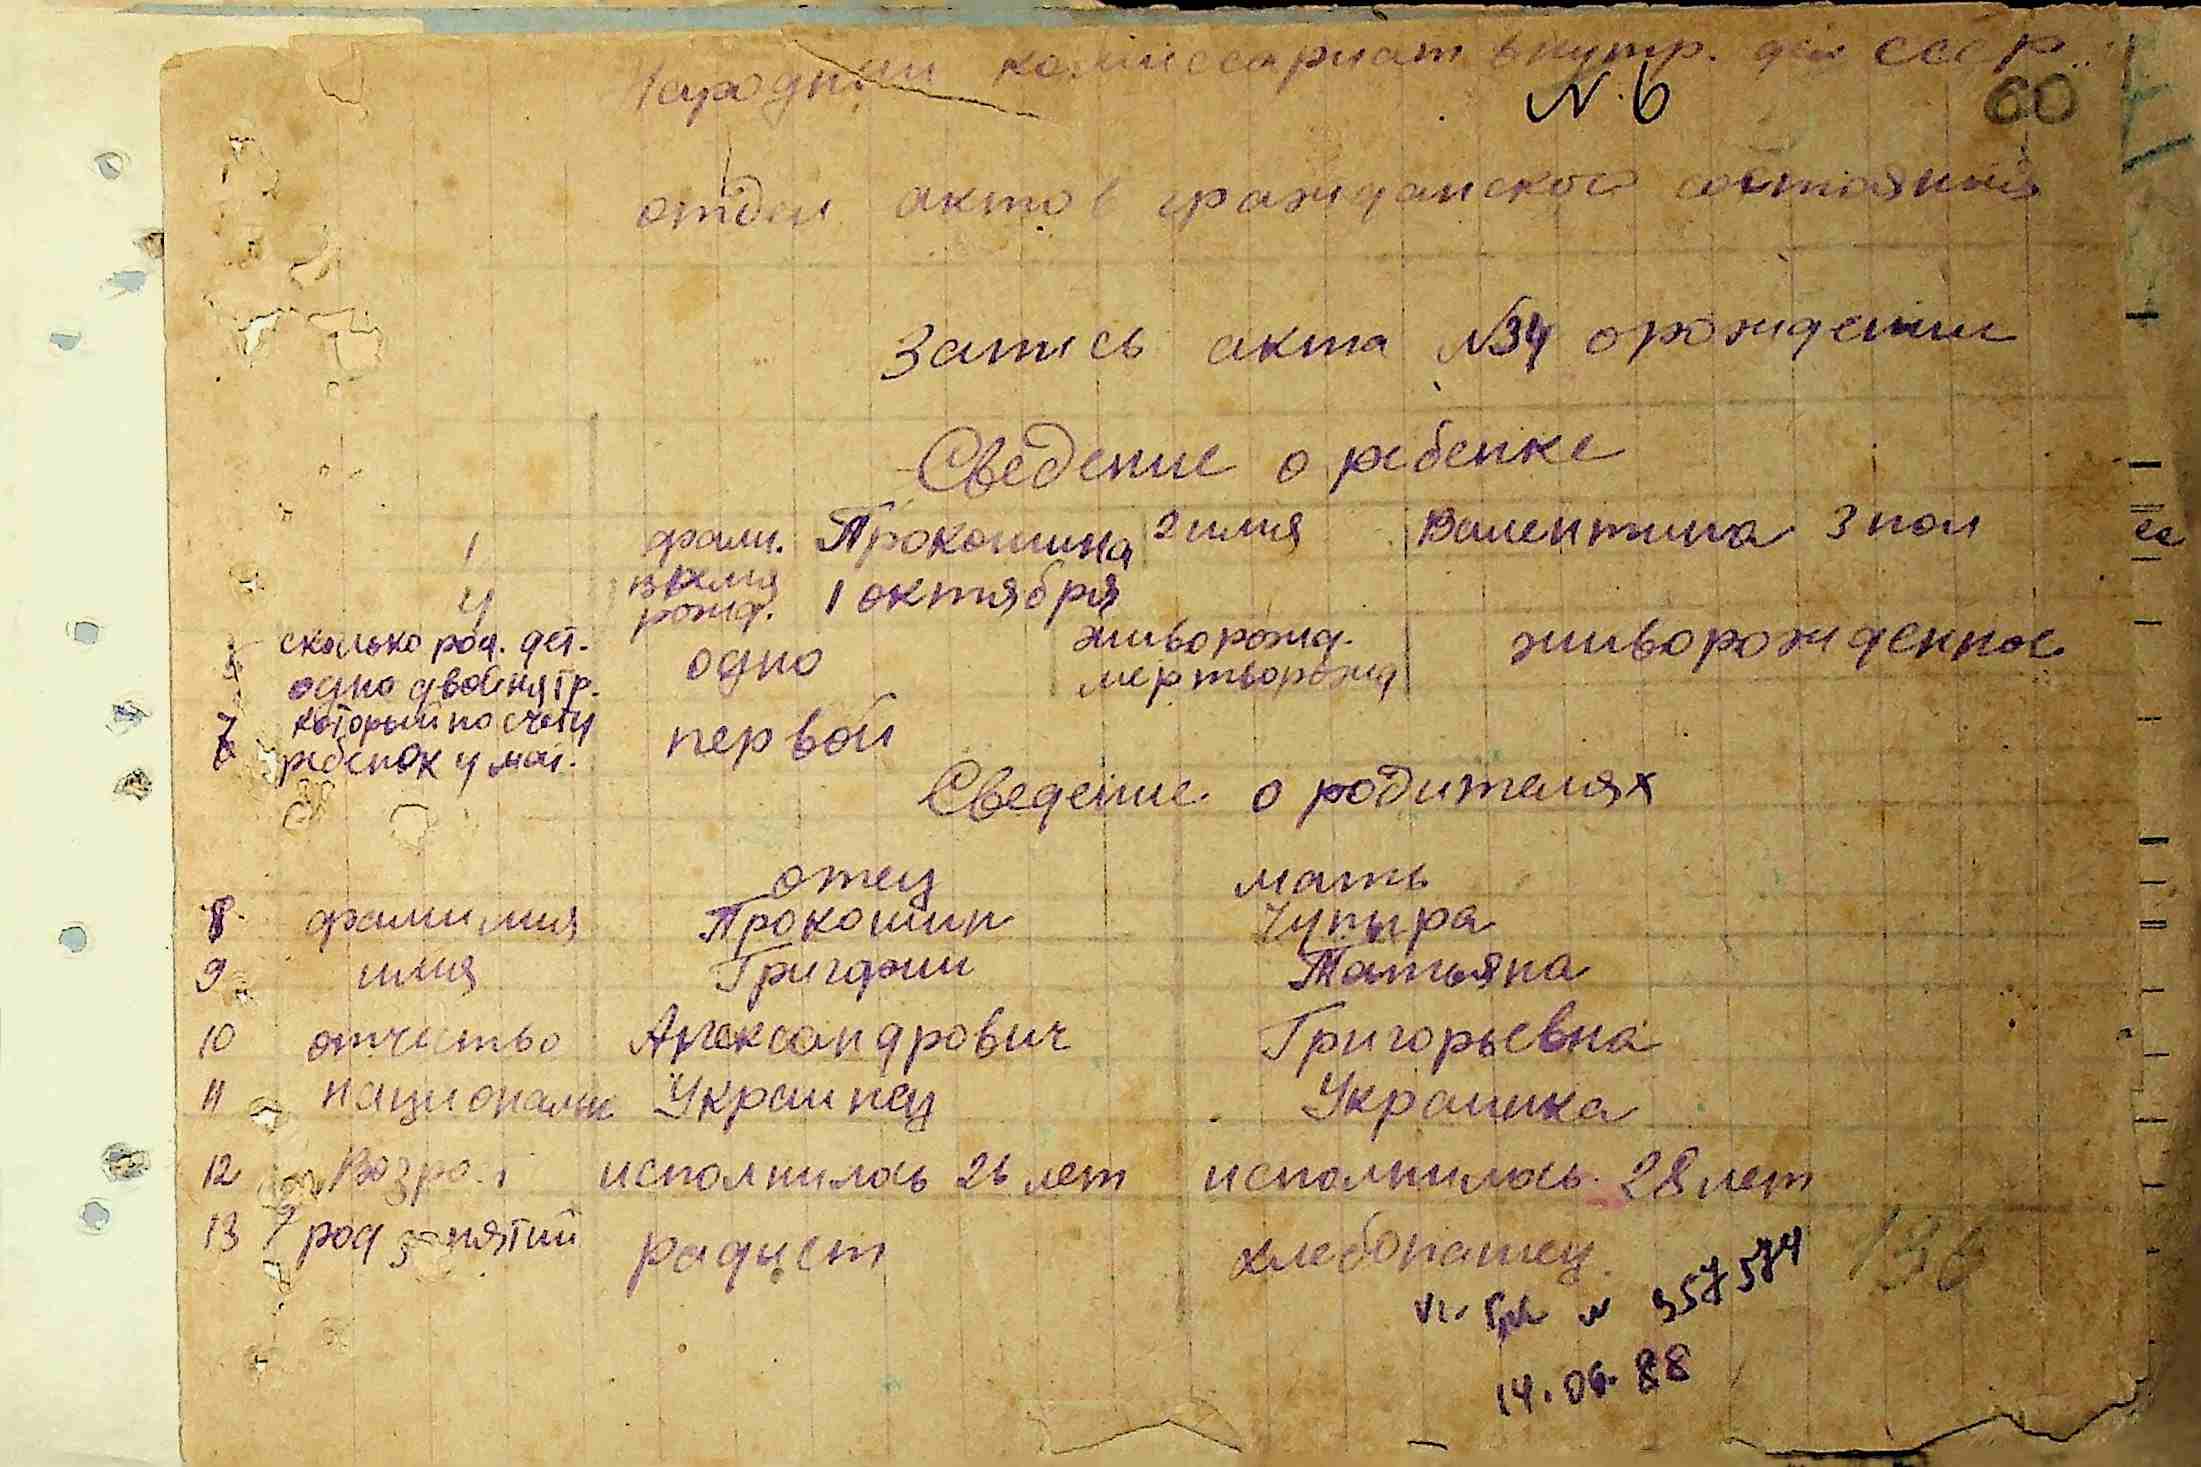 Народный комиссариат внутр. дел СССР
N. 6
60
отдел актов гражданского состояния
Запись акта №34 о рождении
Сведение о ребенке
1 фами. Прокошина 2 имя Валентина 3 пол
4 время рожд. 1 октября
сколько род. дет. одно двойня тр. одно живорожд. мертворожд живорожденное
7 который по счету ребенок у мат. первой
Сведение о родителях
отец мать
8 фамилия Прокошин Чупыра
9 имя Григорий Татьяна
10 отчество Александрович Григорьевна
11 национальн Украинец Украинка
12 Возра исполнилось 26 лет исполнилось 28 лет
13 род занятий радист хлебопашец
№ 357574
196
14.06.88